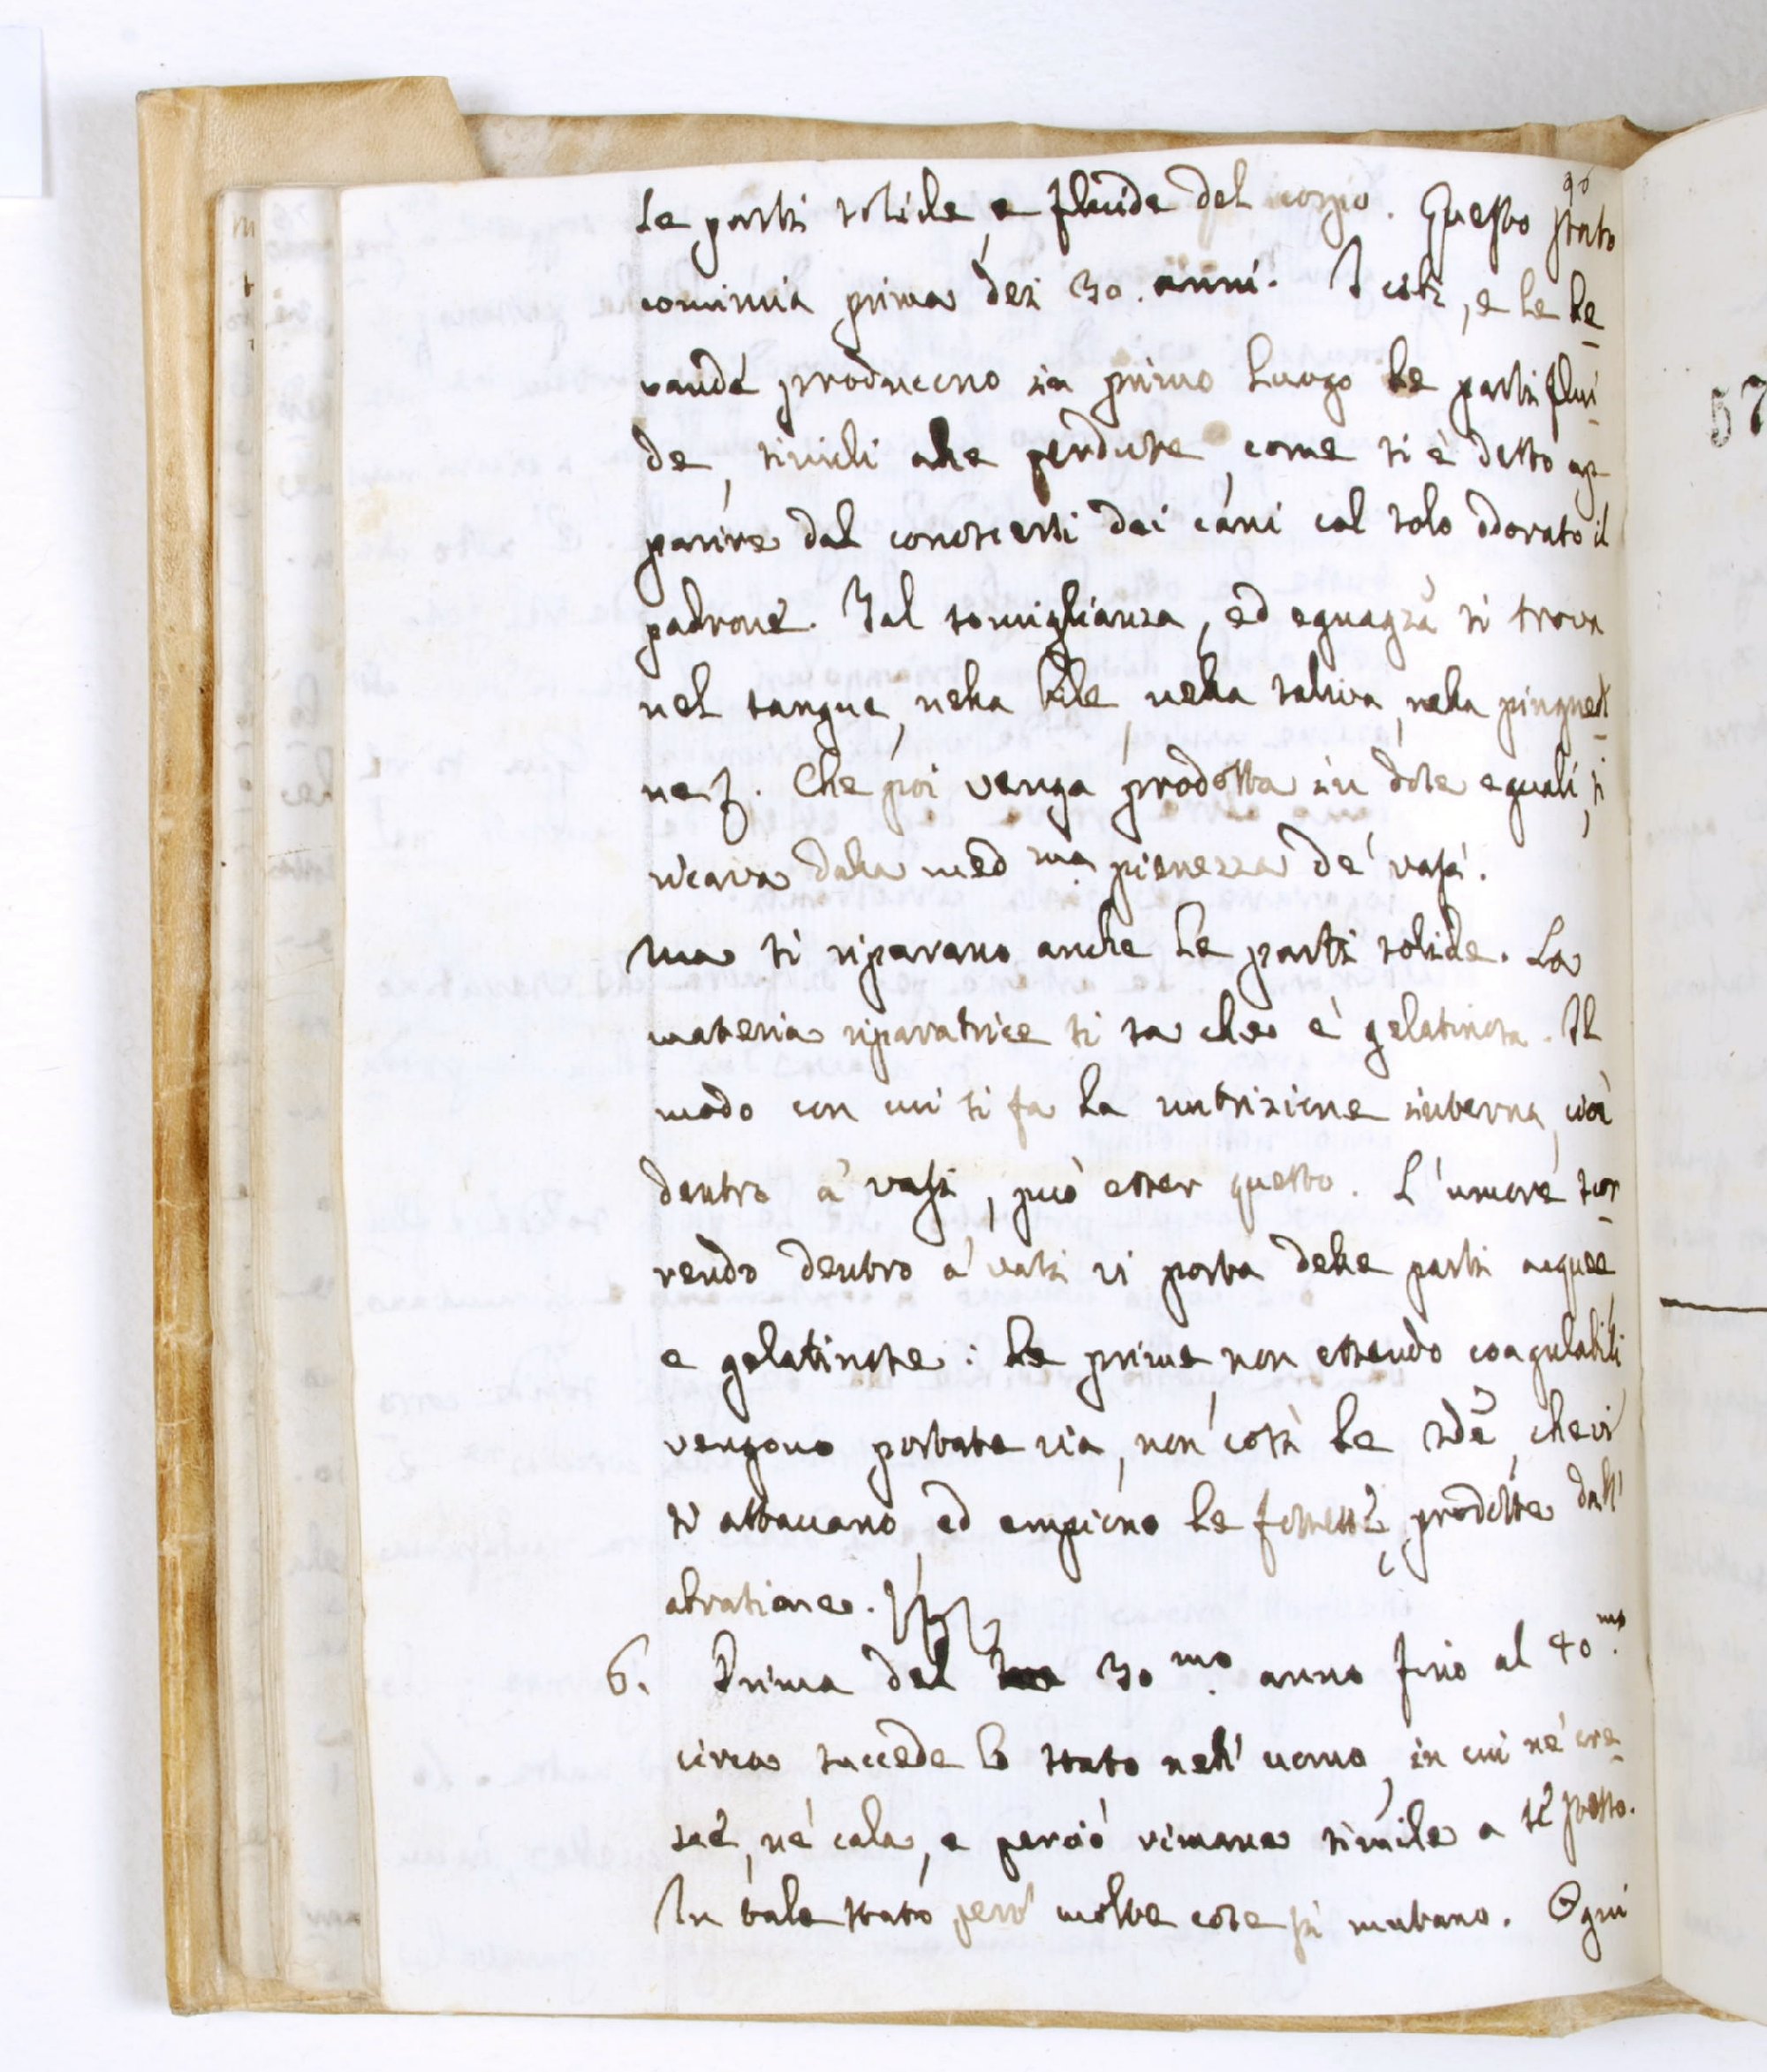 90
Le parti solide, e fluide del corpo. Questo stato
comincia prima dei 30. anni. I cibi, e le be
vande producono in primo luogo le parti flui
de, simili alle perdute, come si è detto ap
parire dal conoscersi dai cani col solo odorato il
padrone. Tal somiglianza, ed eguagza si trova
nel sangue, nella bile, nella saliva, nella pingued
ne &. Che poi venga prodotta in dose eguali, si
ricava dalla med ma pienezza de' vasi.
Ma si riparano anche le parti solide. La
materia riparatrice si sa che è gelatinosa. Il
modo con cui si fa la nutrizione interna, cioè
dentro a' vasi, può esser questo. L'umore scor
rendo dentro a' vasi vi porta delle parti acquee
e gelatinose: le prime non essendo coagulabili
vengono portate via, non così le 2de, che vi
si attaccano, ed empiono le fossette, prodotte dall'
abrasione.
6. Prima del 30 mo. anno fino al 40 mo.
circa succede lo stato nell' uomo, in cui né cre
sce, né cala, e perciò rimane simile a sé stesso.
In tale stato però molte cose si mutano. Ogni
57